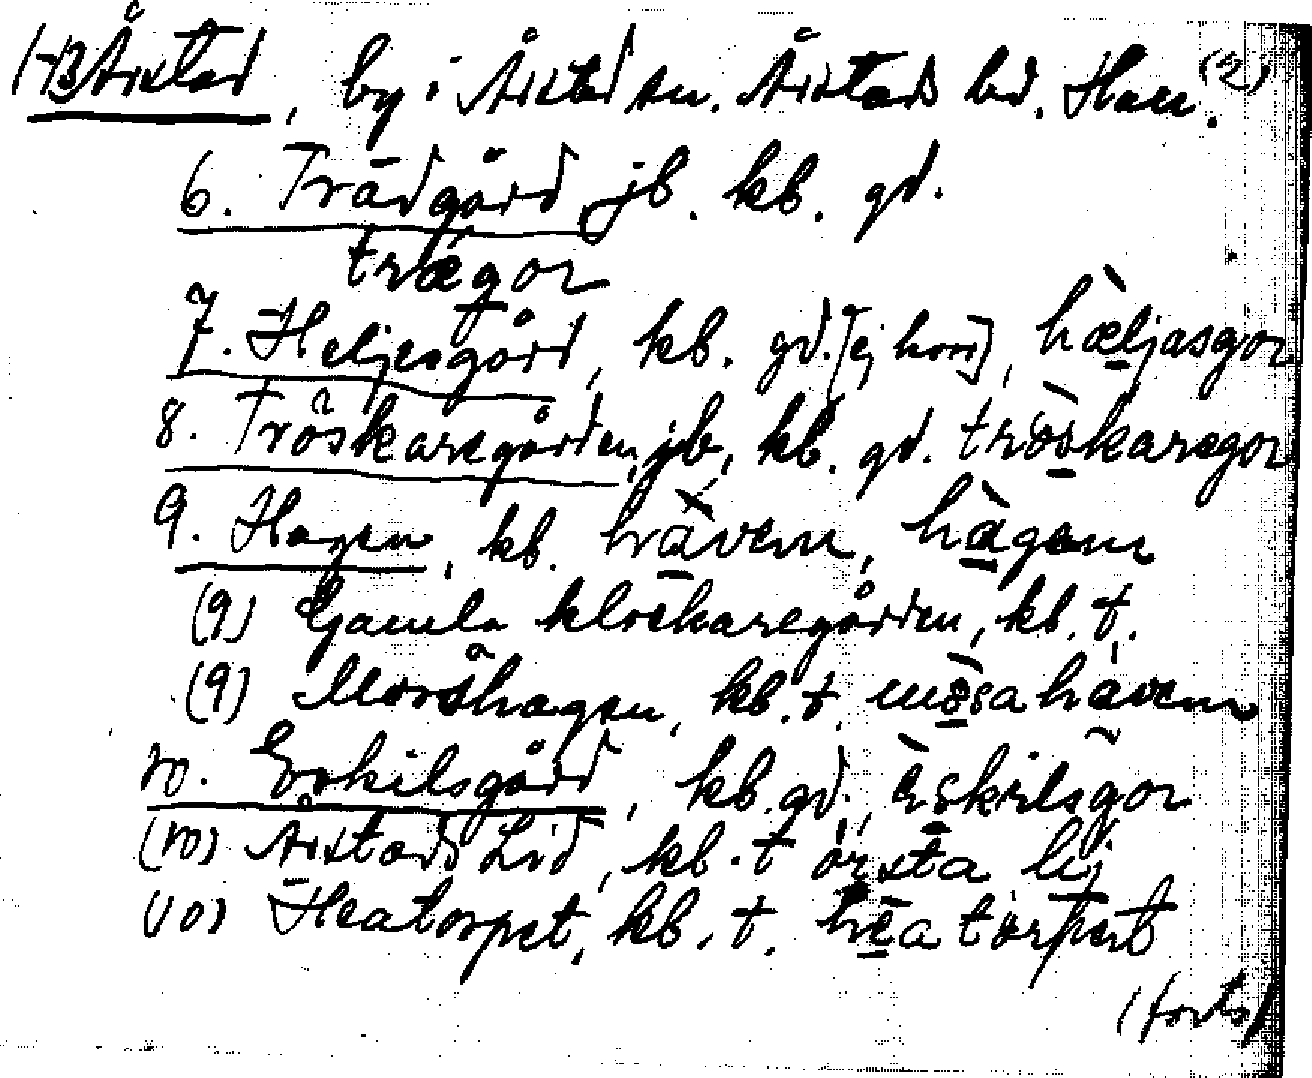 Årstad, by i Årstad sn. Årstads hd. Hall. (2)
6. Trädgård jb. kb. gd.
trægor
7. Heljesgård, kb. gd. [ej hörs], hæljasgor
8. Tröskaregården, jb, kb. gd. tröskaregor
9. Hagen, kb. havem, hagam
(9) Gamla klockaregården, kb. t.
(9) Morshagen, kb. t. mosahavem
10. Eskilsgård, kb. gd., eskilsgor
(10) Årstads Lid, kb. t årsta lij
(10) Heatorpet, kb. t. heatorpet
(forts)